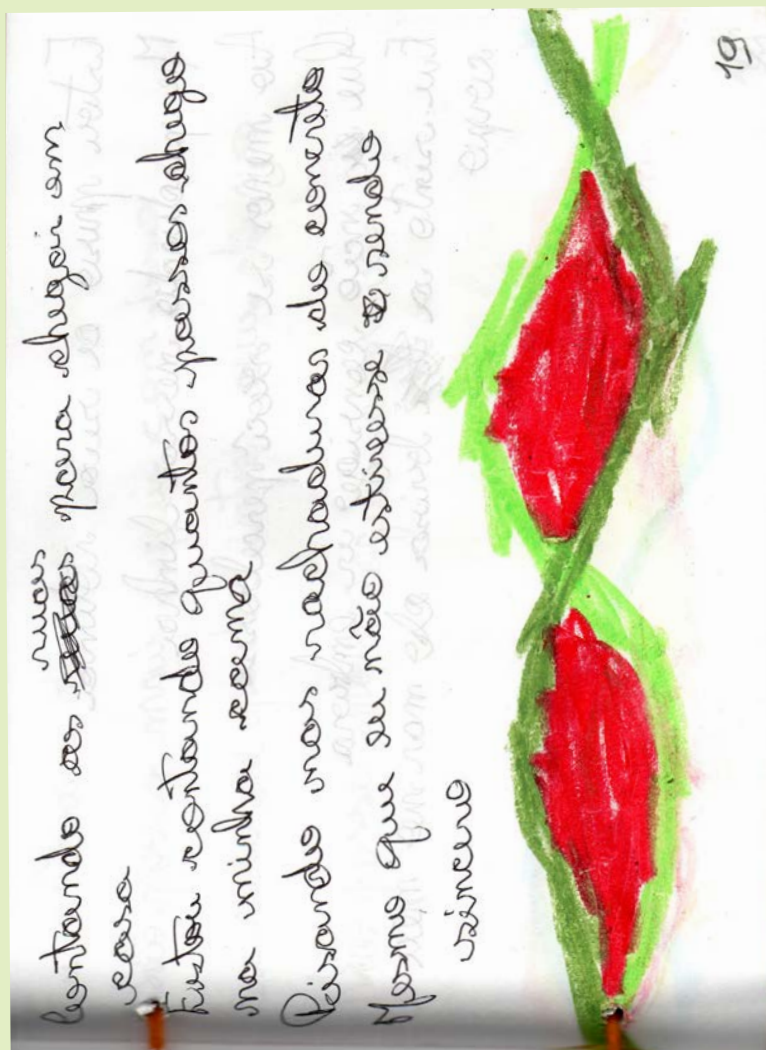 Contando as ruas para chegar em
casa
Estou contando quantos passos chego
na minha cama
Pisando nas rachaduras do concreto
Mesmo que eu não estivesse sendo
sincero
19